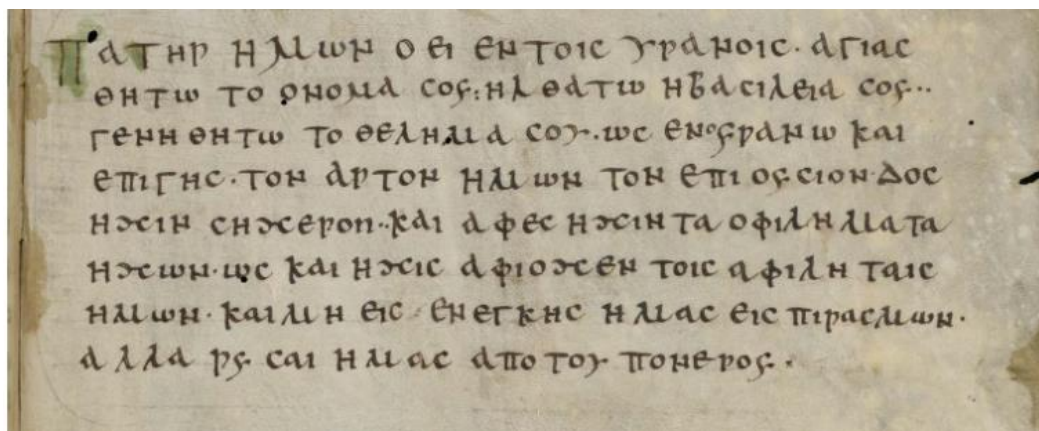 Πατηρ ημων ο ει εν τοις υρανοις· αγιας
θητω το ονομα σου· ηλθατω η βασιλεια σου··
γενηθητω το θελημα σου· ως εν ουρανω και
επι γης· τον αρτον ημων τον επιουσιον· δος
ημιν σημερον·· και αφες ημιν τα οφιλημματα
ημων· ως και ημις αφιομεν τοις αφιληταις
ημων· και μη εις·ενεγκης ημας εις πιρασμων·
αλλα ρυ·σαι ημας απο του πονερου·